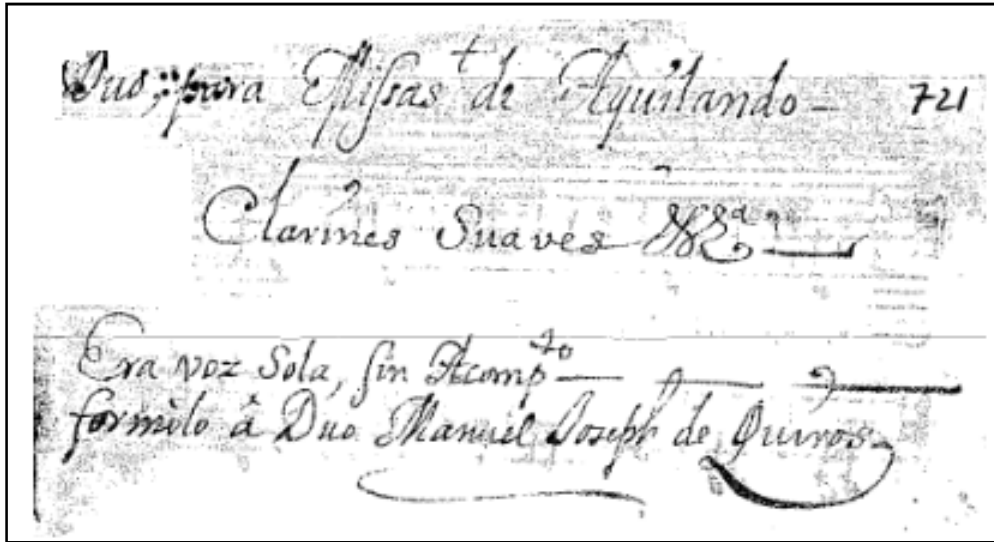 Duo, para Missas de Aguilando - 721
Clarines Suaves &a
Era voz Sola, sin Acompto
formòlo â Duo Manuel Joseph de Quiros.